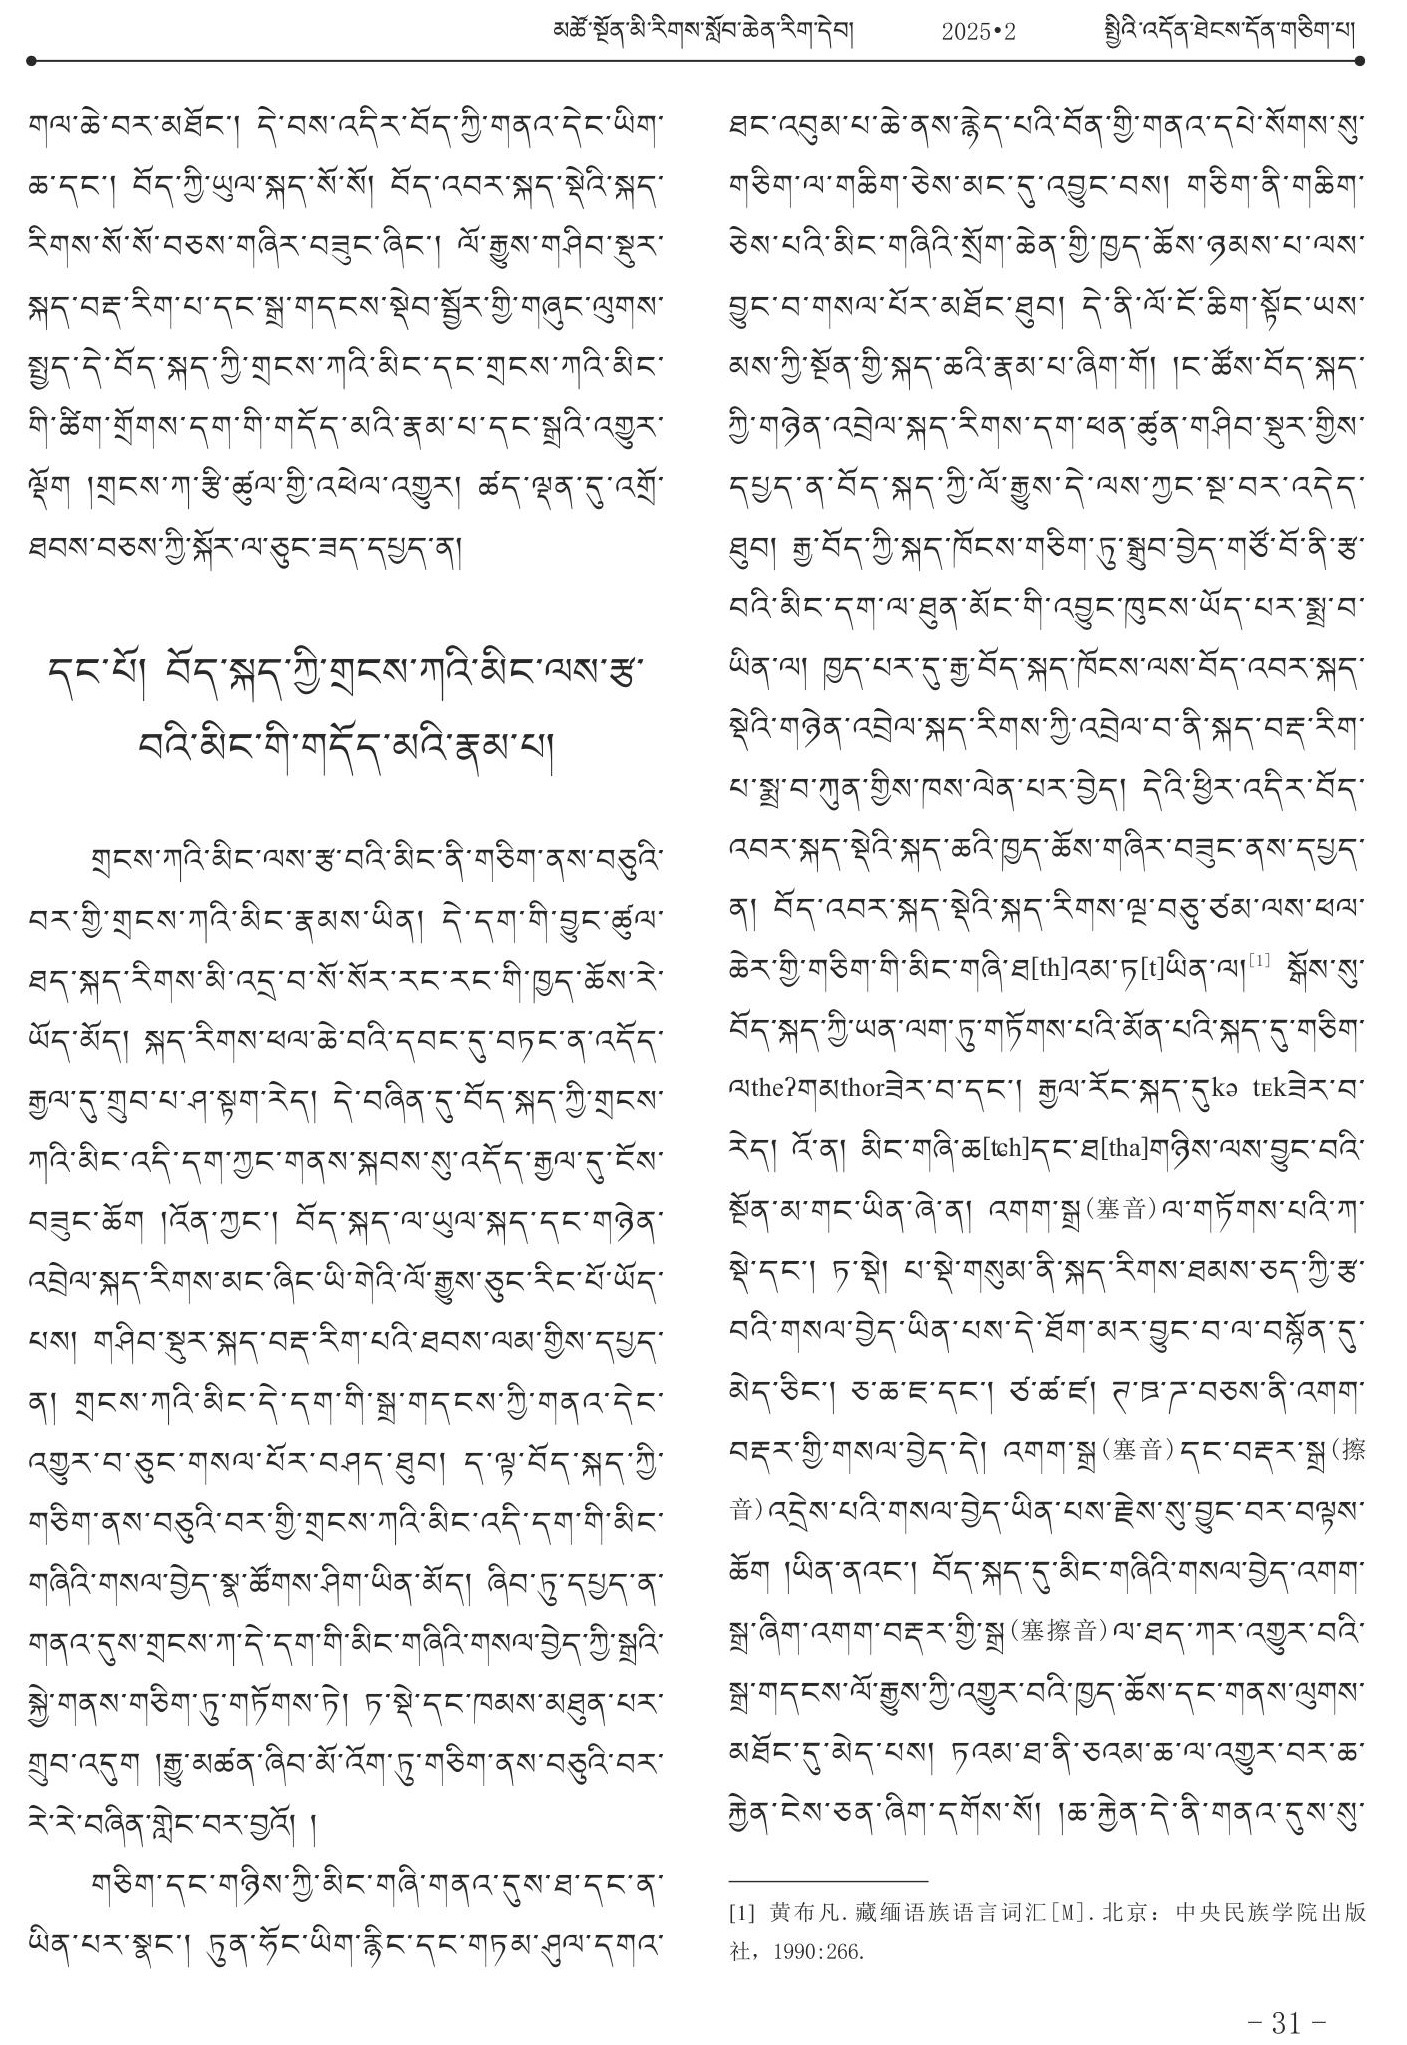 མཚོ་སྔོན་མི་རིགས་སློབ་ཆེན་རིག་དེབ།	2025•2	སྤྱིའི་འདོན་ཐེངས་དོན་གཅིག་པ།
གལ་ཆེ་བར་མཐོང་། དེ་བས་འདིར་བོད་ཀྱི་གནའ་དེང་ཡིག་
ཆ་དང་། བོད་ཀྱི་ཡུལ་སྐད་སོ་སོ། བོད་འབར་སྐད་སྡེའི་སྐད་
རིགས་སོ་སོ་བཅས་གཞིར་བཟུང་ཞིང་། ལོ་རྒྱུས་གཤིབ་སྡུར་
སྐད་བརྡ་རིག་པ་དང་སྒྲ་གདངས་སྡེབ་སྦྱོར་གྱི་གཞུང་ལུགས་
སྤྱད་དེ་བོད་སྐད་ཀྱི་གྲངས་ཀའི་མིང་དང་གྲངས་ཀའི་མིང་
གི་ཚིག་གྲོགས་དག་གི་གདོད་མའི་རྣམ་པ་དང་སྒྲའི་འགྱུར་
ལྡོག །གྲངས་ཀ་རྩི་ཚུལ་གྱི་འཕེལ་འགྱུར། ཚད་ལྡན་དུ་འགྲོ་
ཐབས་བཅས་ཀྱི་སྐོར་ལ་ཅུང་ཟད་དཔྱད་ན།
དང་པོ། བོད་སྐད་ཀྱི་གྲངས་ཀའི་མིང་ལས་རྩ་
བའི་མིང་གི་གདོད་མའི་རྣམ་པ།
གྲངས་ཀའི་མིང་ལས་རྩ་བའི་མིང་ནི་གཅིག་ནས་བཅུའི་
བར་གྱི་གྲངས་ཀའི་མིང་རྣམས་ཡིན། དེ་དག་གི་བྱུང་ཚུལ་
ཐད་སྐད་རིགས་མི་འདྲ་བ་སོ་སོར་རང་རང་གི་ཁྱད་ཆོས་རེ་
ཡོད་མོད། སྐད་རིགས་ཕལ་ཆེ་བའི་དབང་དུ་བཏང་ན་འདོད་
རྒྱལ་དུ་གྲུབ་པ་ཤ་སྟག་རེད། དེ་བཞིན་དུ་བོད་སྐད་ཀྱི་གྲངས་
ཀའི་མིང་འདི་དག་ཀྱང་གནས་སྐབས་སུ་འདོད་རྒྱལ་དུ་ངོས་
བཟུང་ཆོག །འོན་ཀྱང་། བོད་སྐད་ལ་ཡུལ་སྐད་དང་གཉེན་
འབྲེལ་སྐད་རིགས་མང་ཞིང་ཡི་གེའི་ལོ་རྒྱུས་ཅུང་རིང་པོ་ཡོད་
པས། གཤིབ་སྡུར་སྐད་བརྡ་རིག་པའི་ཐབས་ལམ་གྱིས་དཔྱད་
ན། གྲངས་ཀའི་མིང་དེ་དག་གི་སྒྲ་གདངས་ཀྱི་གནའ་དེང་
འགྱུར་བ་ཅུང་གསལ་པོར་བཤད་ཐུབ། ད་ལྟ་བོད་སྐད་ཀྱི་
གཅིག་ནས་བཅུའི་བར་གྱི་གྲངས་ཀའི་མིང་འདི་དག་གི་མིང་
གཞིའི་གསལ་བྱེད་སྣ་ཚོགས་ཤིག་ཡིན་མོད། ཞིབ་ཏུ་དཔྱད་ན་
གནའ་དུས་གྲངས་ཀ་དེ་དག་གི་མིང་གཞིའི་གསལ་བྱེད་ཀྱི་སྒྲའི་
སྐྱེ་གནས་གཅིག་ཏུ་གཏོགས་ཏེ། ཏ་སྡེ་དང་ཁམས་མཐུན་པར་
གྲུབ་འདུག །རྒྱུ་མཚན་ཞིབ་མོ་འོག་ཏུ་གཅིག་ནས་བཅུའི་བར་
རེ་རེ་བཞིན་གླེང་བར་བྱའོ། །
གཅིག་དང་གཉིས་ཀྱི་མིང་གཞི་གནའ་དུས་ཐ་དང་ན་
ཡིན་པར་སྣང་། ཏུན་ཧོང་ཡིག་རྙིང་དང་གཏམ་ཤུལ་དགའ་
ཐང་འབུམ་པ་ཆེ་ནས་རྙེད་པའི་བོན་གྱི་གནའ་དཔེ་སོགས་སུ་
གཅིག་ལ་གཆིག་ཅེས་མང་དུ་འབྱུང་བས། གཅིག་ནི་གཆིག་
ཅེས་པའི་མིང་གཞིའི་སྲོག་ཆེན་གྱི་ཁྱད་ཆོས་ཉམས་པ་ལས་
བྱུང་བ་གསལ་པོར་མཐོང་ཐུབ། དེ་ནི་ལོ་ངོ་ཆིག་སྟོང་ཡས་
མས་ཀྱི་སྔོན་གྱི་སྐད་ཆའི་རྣམ་པ་ཞིག་གོ། །ང་ཚོས་བོད་སྐད་
ཀྱི་གཉེན་འབྲེལ་སྐད་རིགས་དག་ཕན་ཚུན་གཤིབ་སྡུར་གྱིས་
དཔྱད་ན་བོད་སྐད་ཀྱི་ལོ་རྒྱུས་དེ་ལས་ཀྱང་སྔ་བར་འདེད་
ཐུབ། རྒྱ་བོད་ཀྱི་སྐད་ཁོངས་གཅིག་ཏུ་སྒྲུབ་བྱེད་གཙོ་བོ་ནི་རྩ་
བའི་མིང་དག་ལ་ཐུན་མོང་གི་འབྱུང་ཁུངས་ཡོད་པར་སྨྲ་བ་
ཡིན་ལ། ཁྱད་པར་དུ་རྒྱ་བོད་སྐད་ཁོངས་ལས་བོད་འབར་སྐད་
སྡེའི་གཉེན་འབྲེལ་སྐད་རིགས་ཀྱི་འབྲེལ་བ་ནི་སྐད་བརྡ་རིག་
པ་སྨྲ་བ་ཀུན་གྱིས་ཁས་ལེན་པར་བྱེད། དེའི་ཕྱིར་འདིར་བོད་
འབར་སྐད་སྡེའི་སྐད་ཆའི་ཁྱད་ཆོས་གཞིར་བཟུང་ནས་དཔྱད་
ན། བོད་འབར་སྐད་སྡེའི་སྐད་རིགས་ལྔ་བཅུ་ཙམ་ལས་ཕལ་
ཆེར་གྱི་གཅིག་གི་མིང་གཞི་ཐ[th]འམ་ཏ[t]ཡིན་ལ།[1] སྒོས་སུ་
བོད་སྐད་ཀྱི་ཡན་ལག་ཏུ་གཏོགས་པའི་མོན་པའི་སྐད་དུ་གཅིག་
ལtheʔགམthorཟེར་བ་དང་། རྒྱལ་རོང་སྐད་དུkə tᴇkཟེར་བ་
རེད། འོ་ན། མིང་གཞི་ཆ[tɕh]དང་ཐ[tha]གཉིས་ལས་བྱུང་བའི་
སྔོན་མ་གང་ཡིན་ཞེ་ན། འགག་སྒྲ(塞音)ལ་གཏོགས་པའི་ཀ་
སྡེ་དང་། ཏ་སྡེ། པ་སྡེ་གསུམ་ནི་སྐད་རིགས་ཐམས་ཅད་ཀྱི་རྩ་
བའི་གསལ་བྱེད་ཡིན་པས་དེ་ཐོག་མར་བྱུང་བ་ལ་བསྙོན་དུ་
མེད་ཅིང་། ཅ་ཆ་ཇ་དང་། ཙ་ཚ་ཛ། ཊ་ཋ་ཌ་བཅས་ནི་འགག་
བརྡར་གྱི་གསལ་བྱེད་དེ། འགག་སྒྲ(塞音)དང་བརྡར་སྒྲ(擦
音)འདྲེས་པའི་གསལ་བྱེད་ཡིན་པས་རྗེས་སུ་བྱུང་བར་བལྟས་
ཆོག །ཡིན་ནའང་། བོད་སྐད་དུ་མིང་གཞིའི་གསལ་བྱེད་འགག་
སྒྲ་ཞིག་འགག་བརྡར་གྱི་སྒྲ(塞擦音)ལ་ཐད་ཀར་འགྱུར་བའི་
སྒྲ་གདངས་ལོ་རྒྱུས་ཀྱི་འགྱུར་བའི་ཁྱད་ཆོས་དང་གནས་ལུགས་
མཐོང་དུ་མེད་པས། ཏའམ་ཐ་ནི་ཅའམ་ཆ་ལ་འགྱུར་བར་ཆ་
རྐྱེན་ངེས་ཅན་ཞིག་དགོས་སོ། །ཆ་རྐྱེན་དེ་ནི་གནའ་དུས་སུ་
[1] 黄布凡.藏缅语族语言词汇[M].北京：中央民族学院出版
社，1990:266.
－31－